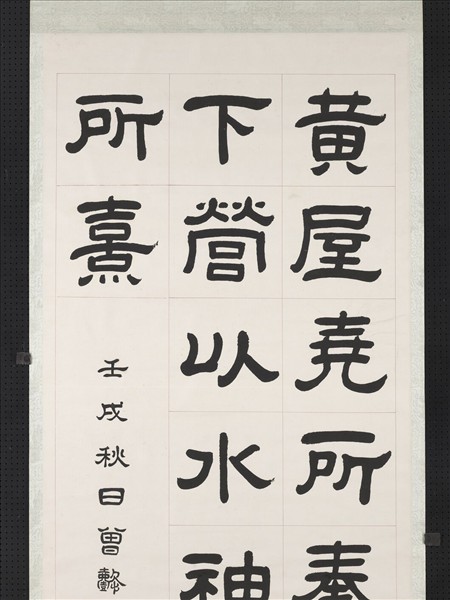 黄屋堯所奉
下營以水神
所熹
壬戌秋日曾